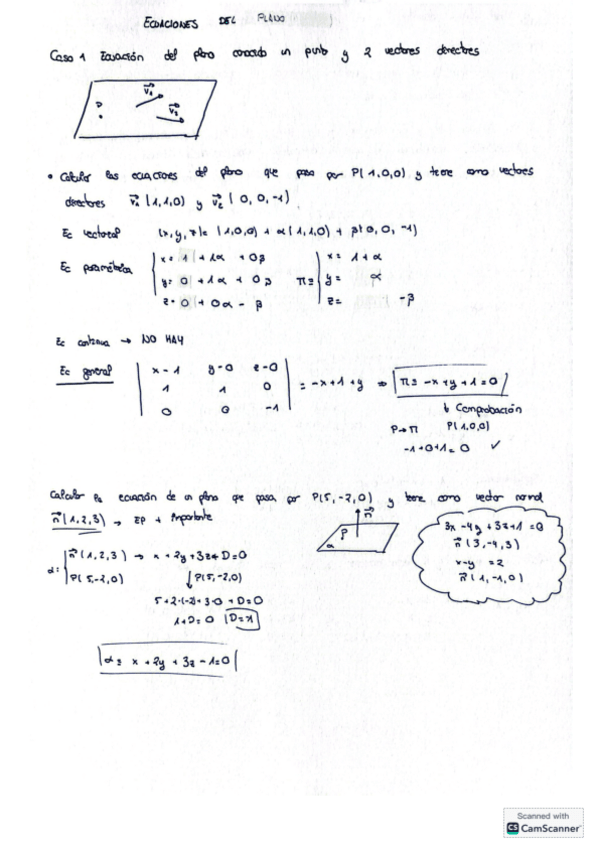 ECUACIONES DEL PLANO
Caso 1 Ecuación del plano conocido un punto y 2 vectores directores
P
v₁
v₂
• Calcular las ecuaciones del plano que pasa por P(1,0,0) y tiene como vectores
directores v₁ (1,1,0) y v₂ (0,0,-1)
Ec vectorial (x,y,z)= (1,0,0) + α(1,1,0) + β(0,0,-1)
Ec paramétrica x = 1 + 1α + 0β x = 1 + α
y = 0 + 1α + 0β π≡ y = α
z = 0 + 0α - β z = -β
Ec continua → NO HAY
Ec general | x-1 y-0 z-0 |
| 1 1 0 | = -x+1+y ⇒ π≡ -x+y+1=0
| 0 0 -1 |
↳ Comprobación
P→π P(1,0,0)
-1+0+1=0 ✓
Calcular la ecuación de un plano que pasa por P(5,-2,0) y tiene como vector normal
n(1,2,3) → EP + Importante
n
P
α
3x-4y+3z+1=0
n(3,-4,3)
x-y=2
n(1,-1,0)
α: n(1,2,3) → x+2y+3z+D=0
P(5,-2,0) ↓P(5,-2,0)
5+2·(-2)+3·0+D=0
1+D=0 D=-1
α≡ x+2y+3z-1=0
Scanned with
CS CamScanner